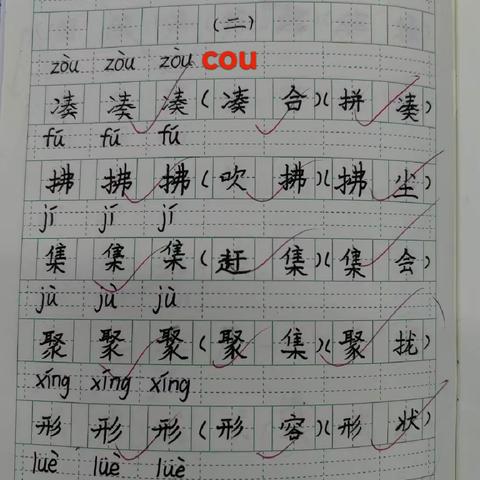 (二)
zòu zòu zòu cou
凑 凑 凑 (凑 合)(拼 凑)
fú fú fú
拂 拂 拂 (吹 拂)(拂 尘)
jí jí jí
集 集 集 (赶 集)(集 会)
jù jù jù
聚 聚 聚 (聚 集)(聚 拢)
xíng xìng xíng
形 形 形 (形 容)(形 状)
lüè lüè lüè